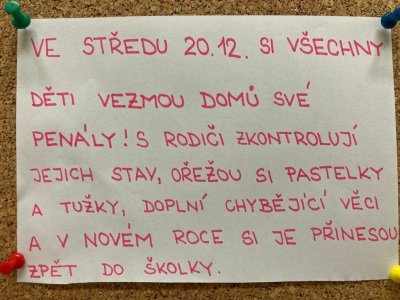 VE STŘEDU 20.12. SI VŠECHNY
DĚTI VEZMOU DOMŮ SVÉ
PENÁLY! S RODIČI ZKONTROLUJÍ
JEJICH STAV, OŘEŽOU SI PASTELKY
A TUŽKY, DOPLNÍ CHYBĚJÍCÍ VĚCI
A V NOVÉM ROCE SI JE PŘINESOU
ZPĚT DO ŠKOLKY.